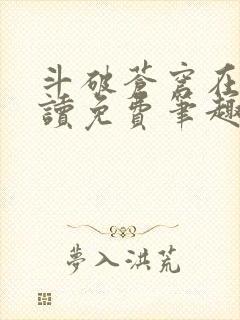 斗破苍穹在
讀免費筆趣
夢入洪荒